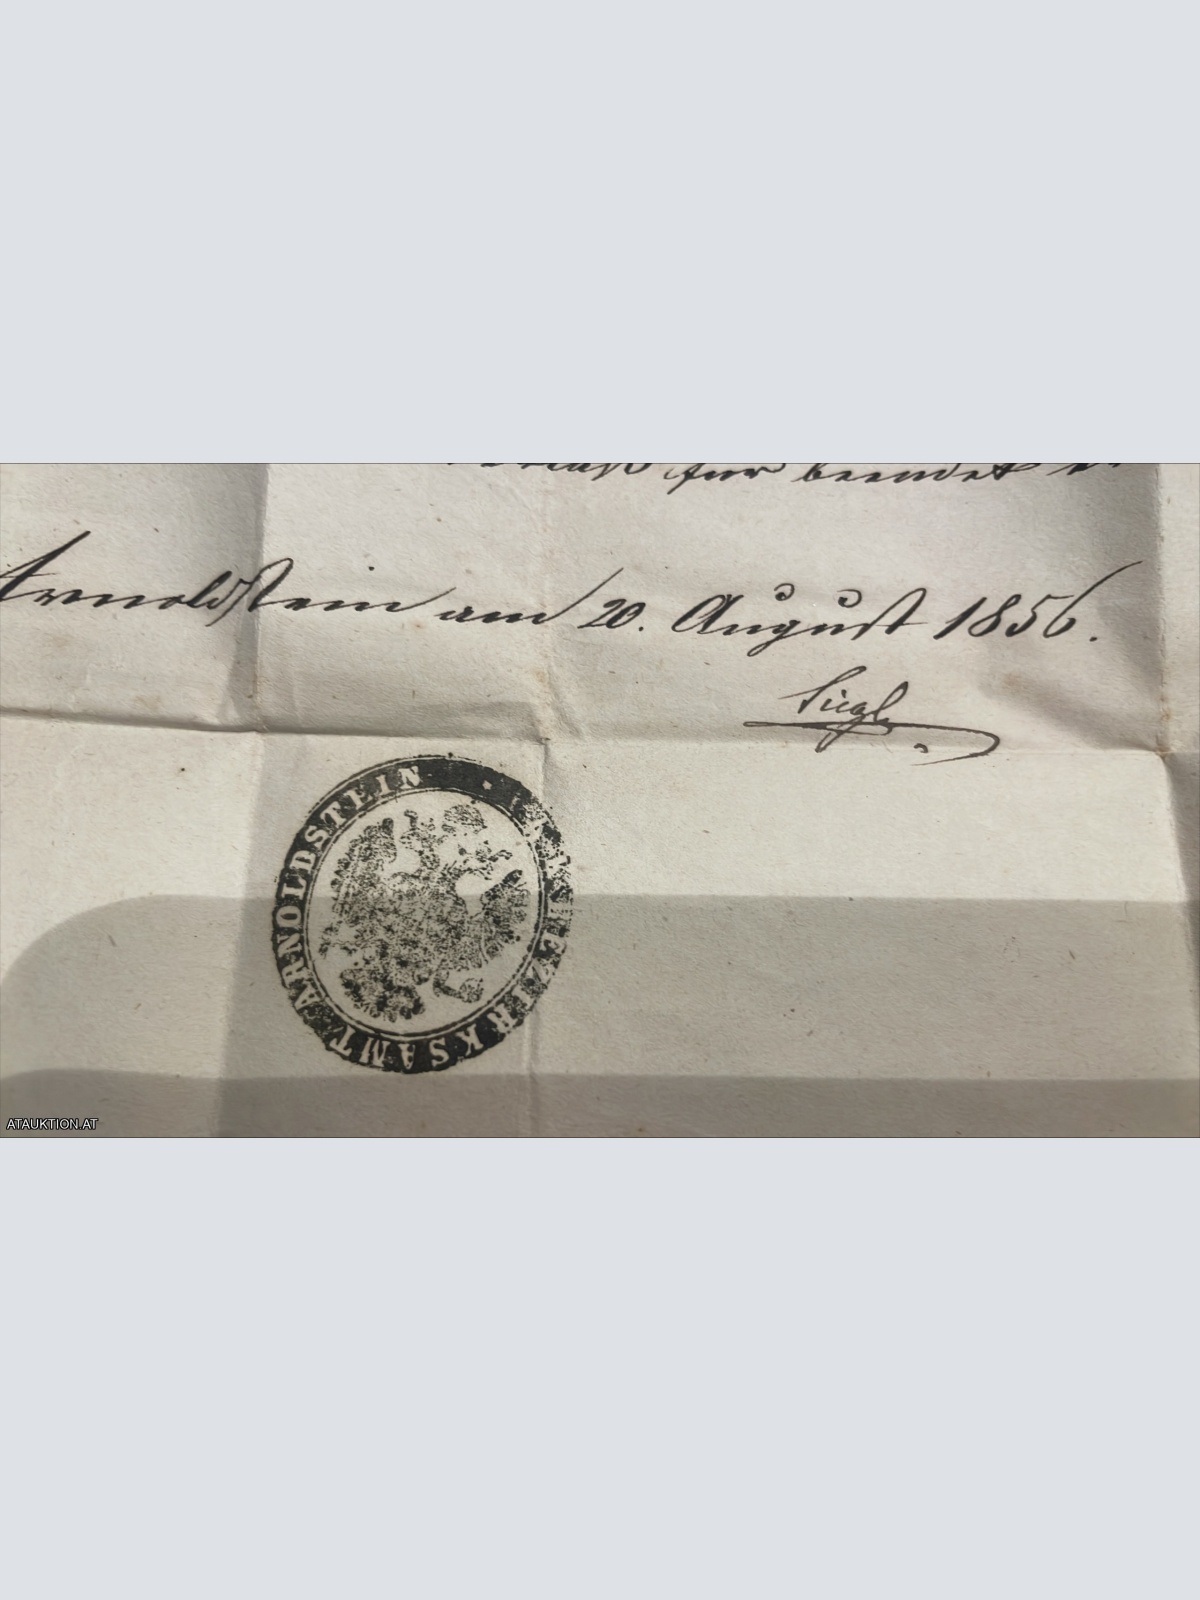 für beendet
Arnoldstein am 20. August 1856.
Siegl
BEZIRKSAMT ARNOLDSTEIN
ATAUKTION.AT